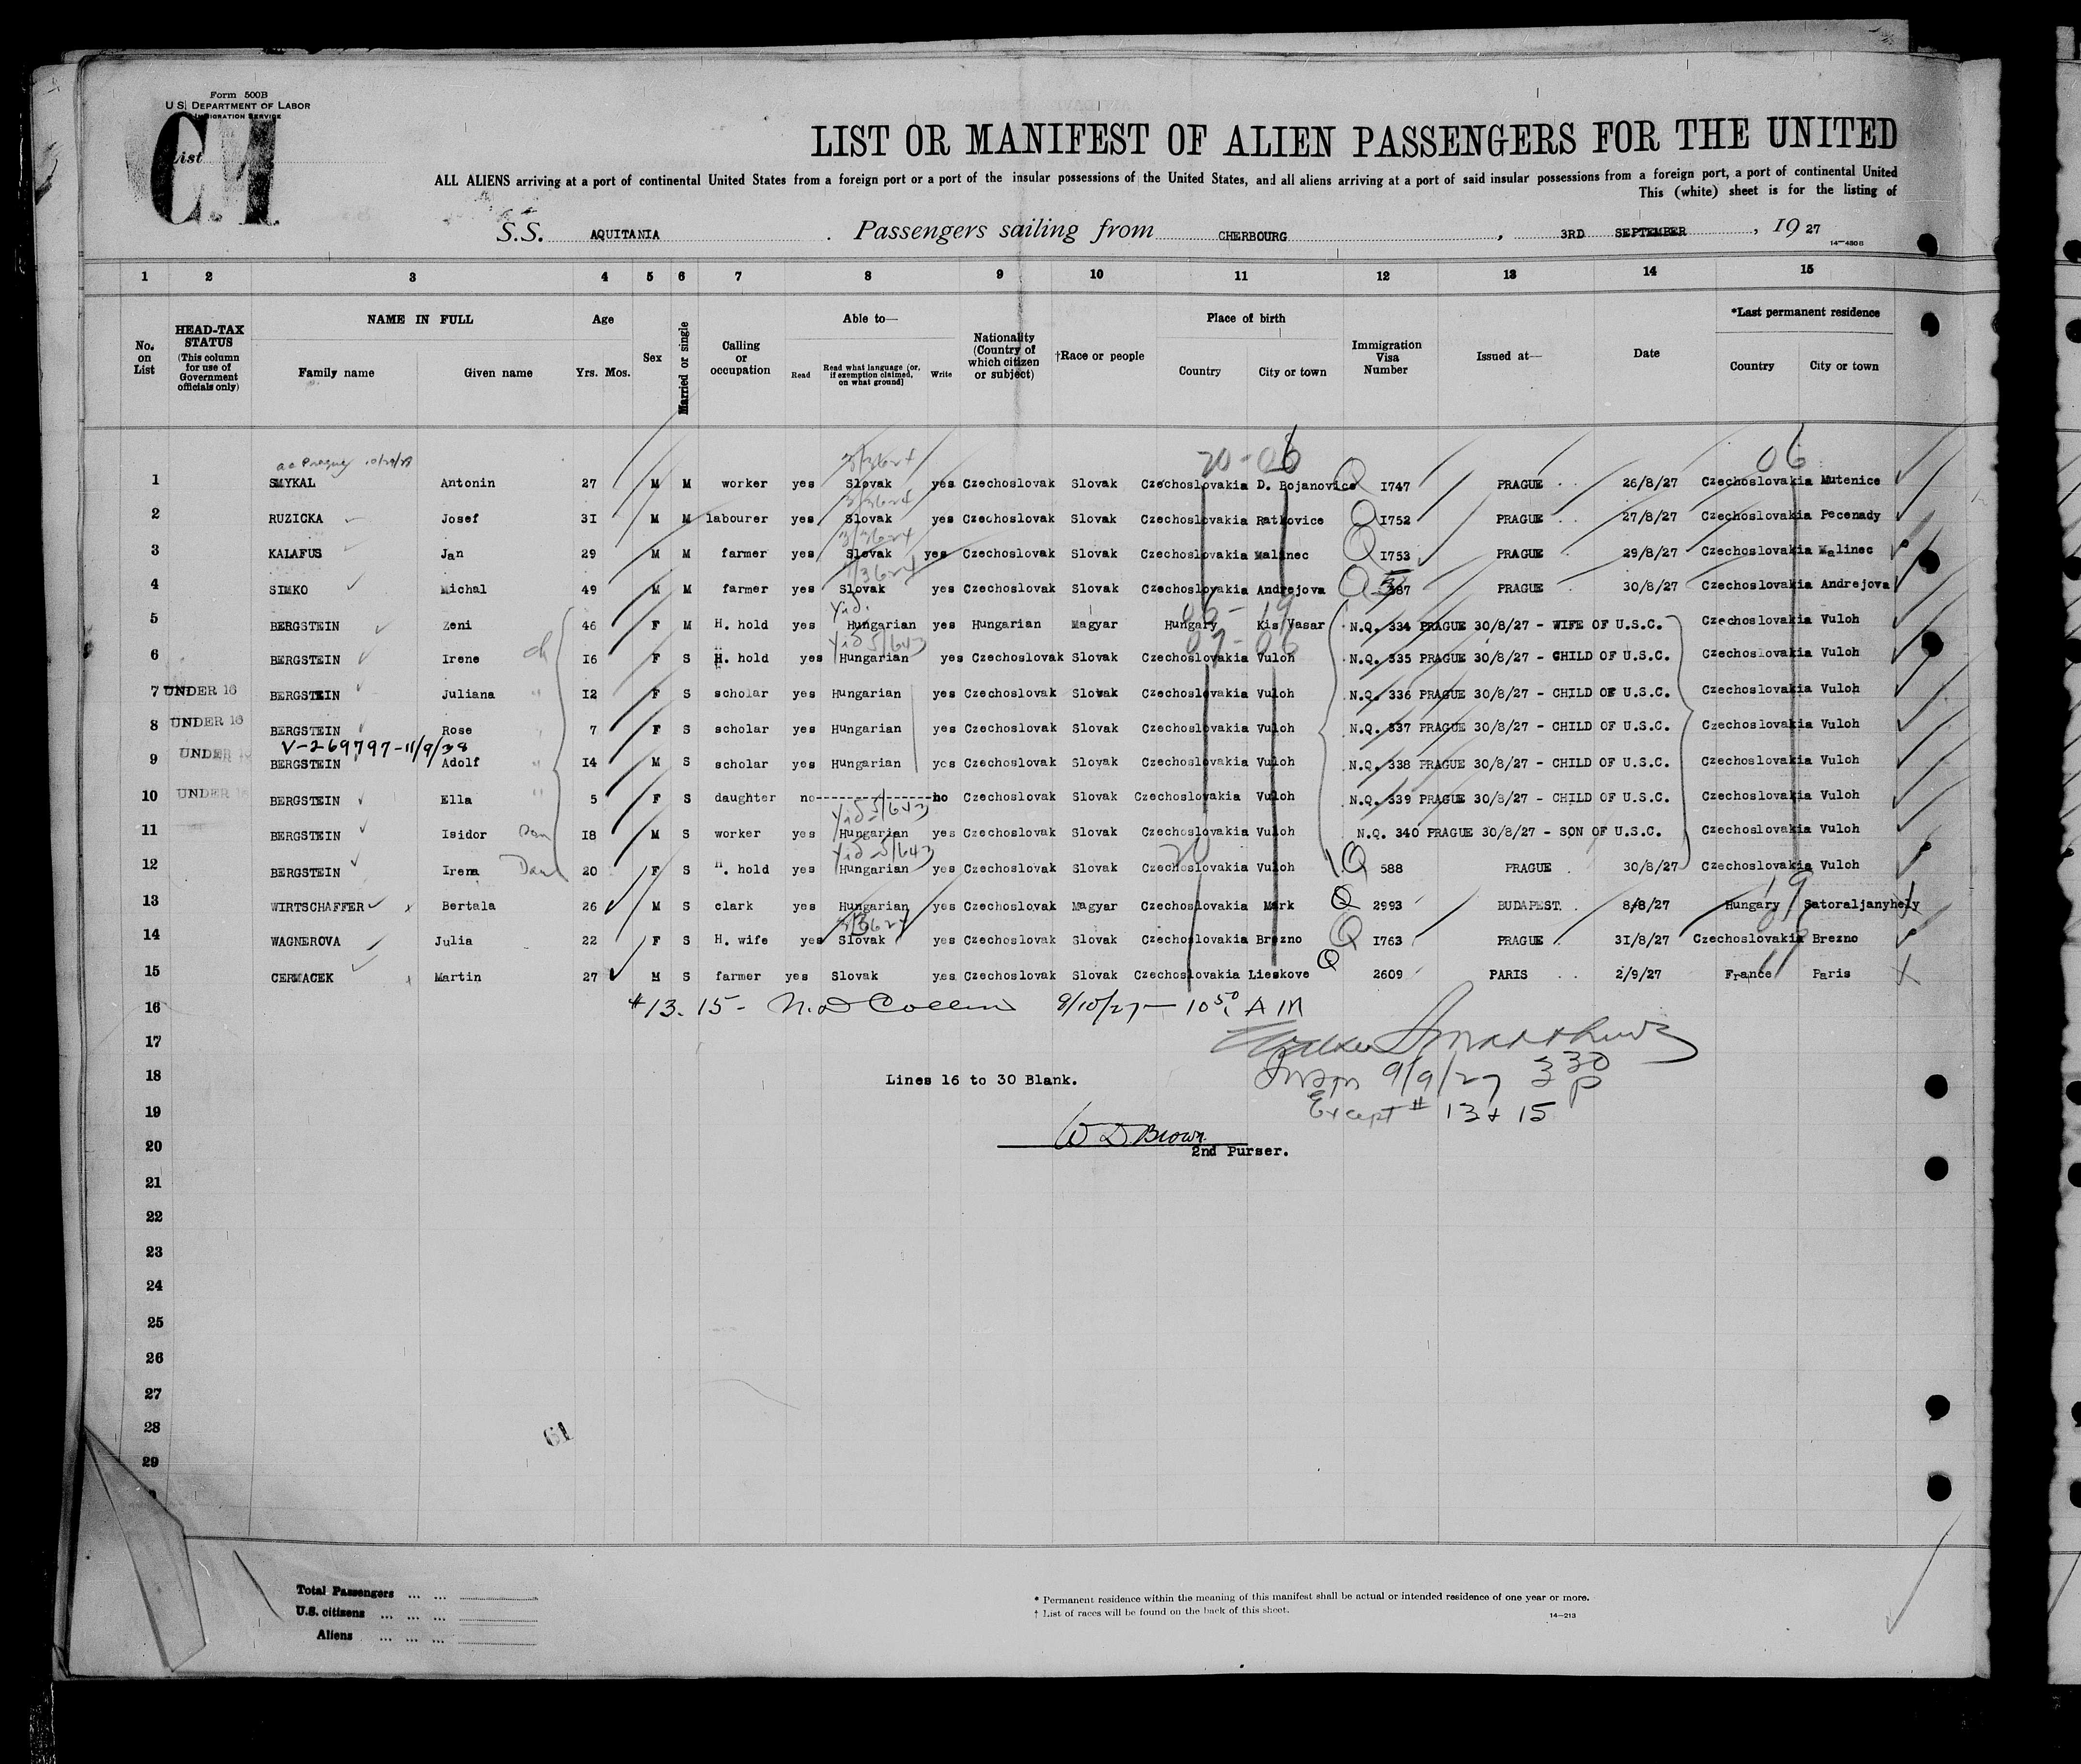 Form 500B
U.S. DEPARTMENT OF LABOR
IMMIGRATION SERVICE
List
LIST OR MANIFEST OF ALIEN PASSENGERS FOR THE UNITED
ALL ALIENS arriving at a port of continental United States from a foreign port or a port of the insular possessions of the United States, and all aliens arriving at a port of said insular possessions from a foreign port, a port of continental United
This (white) sheet is for the listing of
S.S. AQUITANIA . Passengers sailing from CHERBOURG , 3RD SEPTEMBER , 19 27
14-430B
1 2 3 4 5 6 7 8 9 10 11 12 13 14 15
No. on List HEAD-TAX STATUS (This column for use of Government officials only) NAME IN FULL Family name Given name Age Yrs. Mos. Sex Married or single Calling or occupation Able to— Read Read what language (or, if exemption claimed, on what ground) Write Nationality (Country of which citizen or subject) †Race or people Place of birth Country City or town Immigration Visa Number Issued at— Date *Last permanent residence Country City or town
20-06 06
1 SMYKAL Antonin 27 M M worker yes Slovak yes Czechoslovak Slovak Czechoslovakia D. Bojanovice I747 PRAGUE 26/8/27 Czechoslovakia Mutenice
2 RUZICKA Josef 3I M M labourer yes Slovak yes Czechoslovak Slovak Czechoslovakia Ratkovice I752 PRAGUE 27/8/27 Czechoslovakia Pecenady
3 KALAFUS Jan 29 M M farmer yes Slovak yes Czechoslovak Slovak Czechoslovakia Malinec I753 PRAGUE 29/8/27 Czechoslovakia Malinec
4 SIMKO Michal 49 M M farmer yes Slovak yes Czechoslovak Slovak Czechoslovakia Andrejova 587 PRAGUE 30/8/27 Czechoslovakia Andrejova
Yid. 06-19
5 BERGSTEIN Zeni 46 F M H. hold yes Hungarian yes Hungarian Magyar Hungary Kis Vasar N.Q. 334 PRAGUE 30/8/27 - WIFE OF U.S.C. Czechoslovakia Vuloh
Yid 5/643
6 BERGSTEIN Irene I6 F S H. hold yes Hungarian yes Czechoslovak Slovak Czechoslovakia Vuloh N.Q. 335 PRAGUE 30/8/27 - CHILD OF U.S.C. Czechoslovakia Vuloh
7 UNDER 16 BERGSTEIN Juliana I2 F S scholar yes Hungarian yes Czechoslovak Slovak Czechoslovakia Vuloh N.Q. 336 PRAGUE 30/8/27 - CHILD OF U.S.C. Czechoslovakia Vuloh
8 UNDER 16 BERGSTEIN Rose 7 F S scholar yes Hungarian yes Czechoslovak Slovak Czechoslovakia Vuloh N.Q. 337 PRAGUE 30/8/27 - CHILD OF U.S.C. Czechoslovakia Vuloh
V-269797-11/9/38
9 UNDER 16 BERGSTEIN Adolf I4 M S scholar yes Hungarian yes Czechoslovak Slovak Czechoslovakia Vuloh N.Q. 338 PRAGUE 30/8/27 - CHILD OF U.S.C. Czechoslovakia Vuloh
10 UNDER 16 BERGSTEIN Ella 5 F S daughter no-----------------no Czechoslovak Slovak Czechoslovakia Vuloh N.Q. 339 PRAGUE 30/8/27 - CHILD OF U.S.C. Czechoslovakia Vuloh
Yid 5/643
11 BERGSTEIN Isidor I8 M S worker yes Hungarian yes Czechoslovak Slovak Czechoslovakia Vuloh N.Q. 340 PRAGUE 30/8/27 - SON OF U.S.C. Czechoslovakia Vuloh
Yid 5/643
12 BERGSTEIN Irena 20 F S H. hold yes Hungarian yes Czechoslovak Slovak Czechoslovakia Vuloh 588 PRAGUE 30/8/27 Czechoslovakia Vuloh
13 WIRTSCHAFFER Bertala 26 M S clark yes Hungarian yes Czechoslovak Magyar Czechoslovakia Mark 2993 BUDAPEST. 8/8/27 Hungary Satoraljanyhely
14 WAGNEROVA Julia 22 F S H. wife yes Slovak yes Czechoslovak Slovak Czechoslovakia Brezno I763 PRAGUE 3I/8/27 Czechoslovakia Brezno
15 CERMACEK Martin 27 M S farmer yes Slovak yes Czechoslovak Slovak Czechoslovakia Lieskove 2609 PARIS 2/9/27 France Paris
16 #13. 15- N.D Collin 9/10/27 — 10 50 AM
17
18 Lines 16 to 30 Blank. 9/9/27 3 30 P
19 Except # 13 + 15
W D Brown
20 2nd Purser.
21
22
23
24
25
26
27
28
61
29
Total Passengers ... ...
U.S. citizens ... ... ...
Aliens ... ... ...
* Permanent residence within the meaning of this manifest shall be actual or intended residence of one year or more.
† List of races will be found on the back of this sheet. 14-213